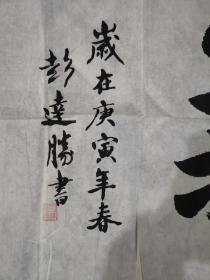 歲在庚寅年春
彭達勝書